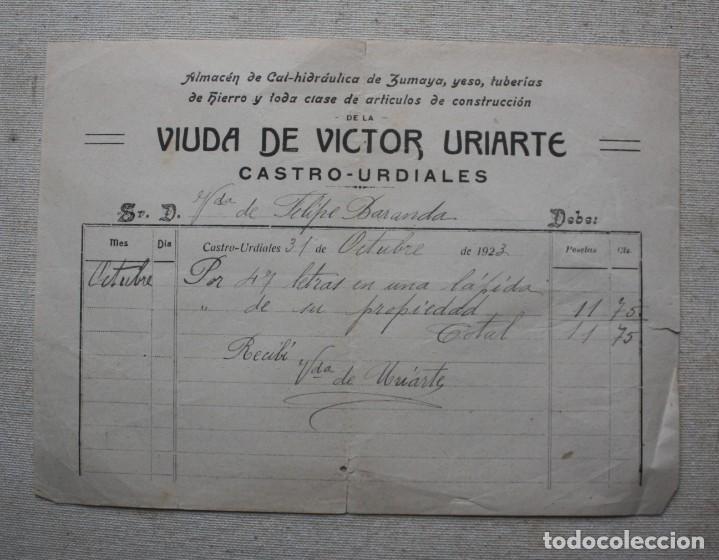 Almacén de Cal-hidráulica de Zumaya, yeso, tuberías
de hierro y toda clase de articulos de construcción
- DE LA -
VIUDA DE VICTOR URIARTE
CASTRO-URDIALES
Sr. D. Vda de Felipe Baranda Debe:
Mes Dia Castro-Urdiales 31 de Octubre de 1923 Pesetas Cts.
Octubre Por 47 letras en una lápida
" de su propiedad 11 75
Total 11 75
Recibí
Vda de Uriarte
todocoleccion